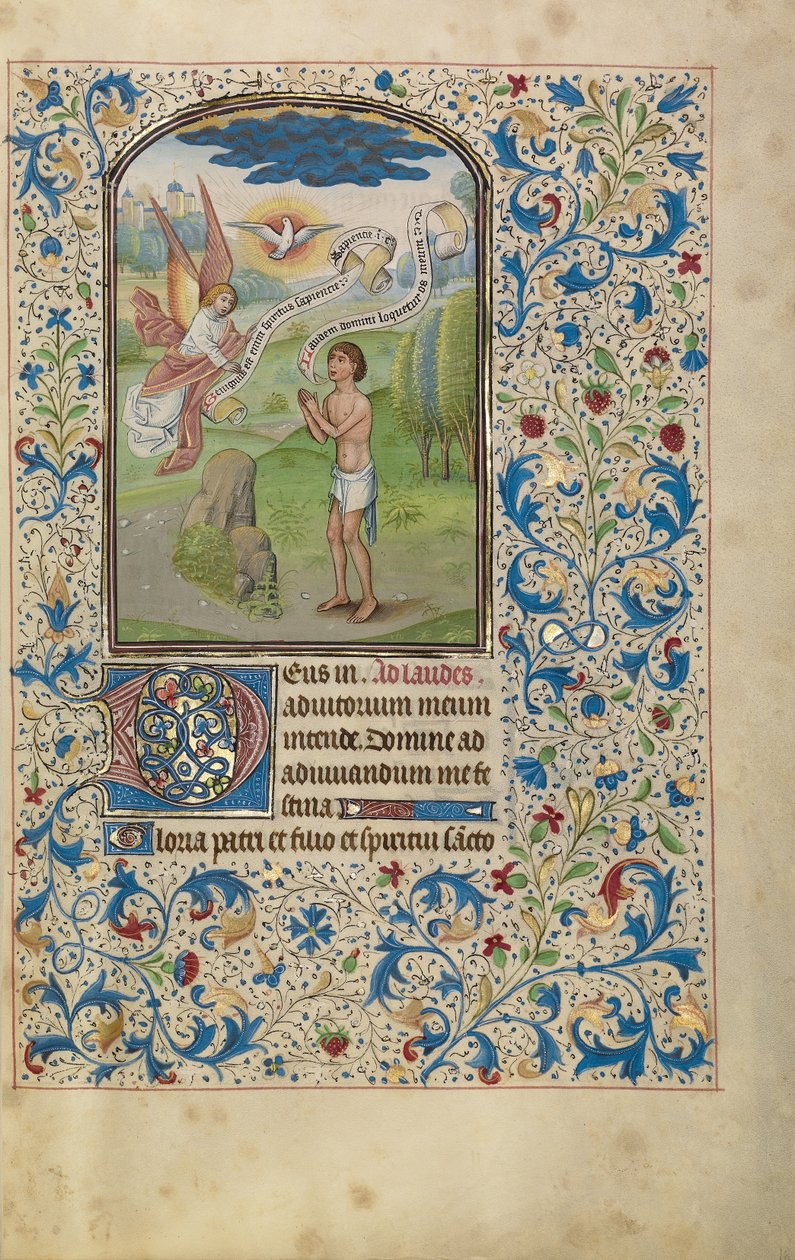 Benignus est enim spiritus sapiencie:
Sapiencie .i. c̊
Laudem domini loquetur os meum
Deus in. Ad laudes.
adiutorium meum
intende. Domine ad
adiuuandum me fe
stina
Gloria patri et filio et spiritui sācto